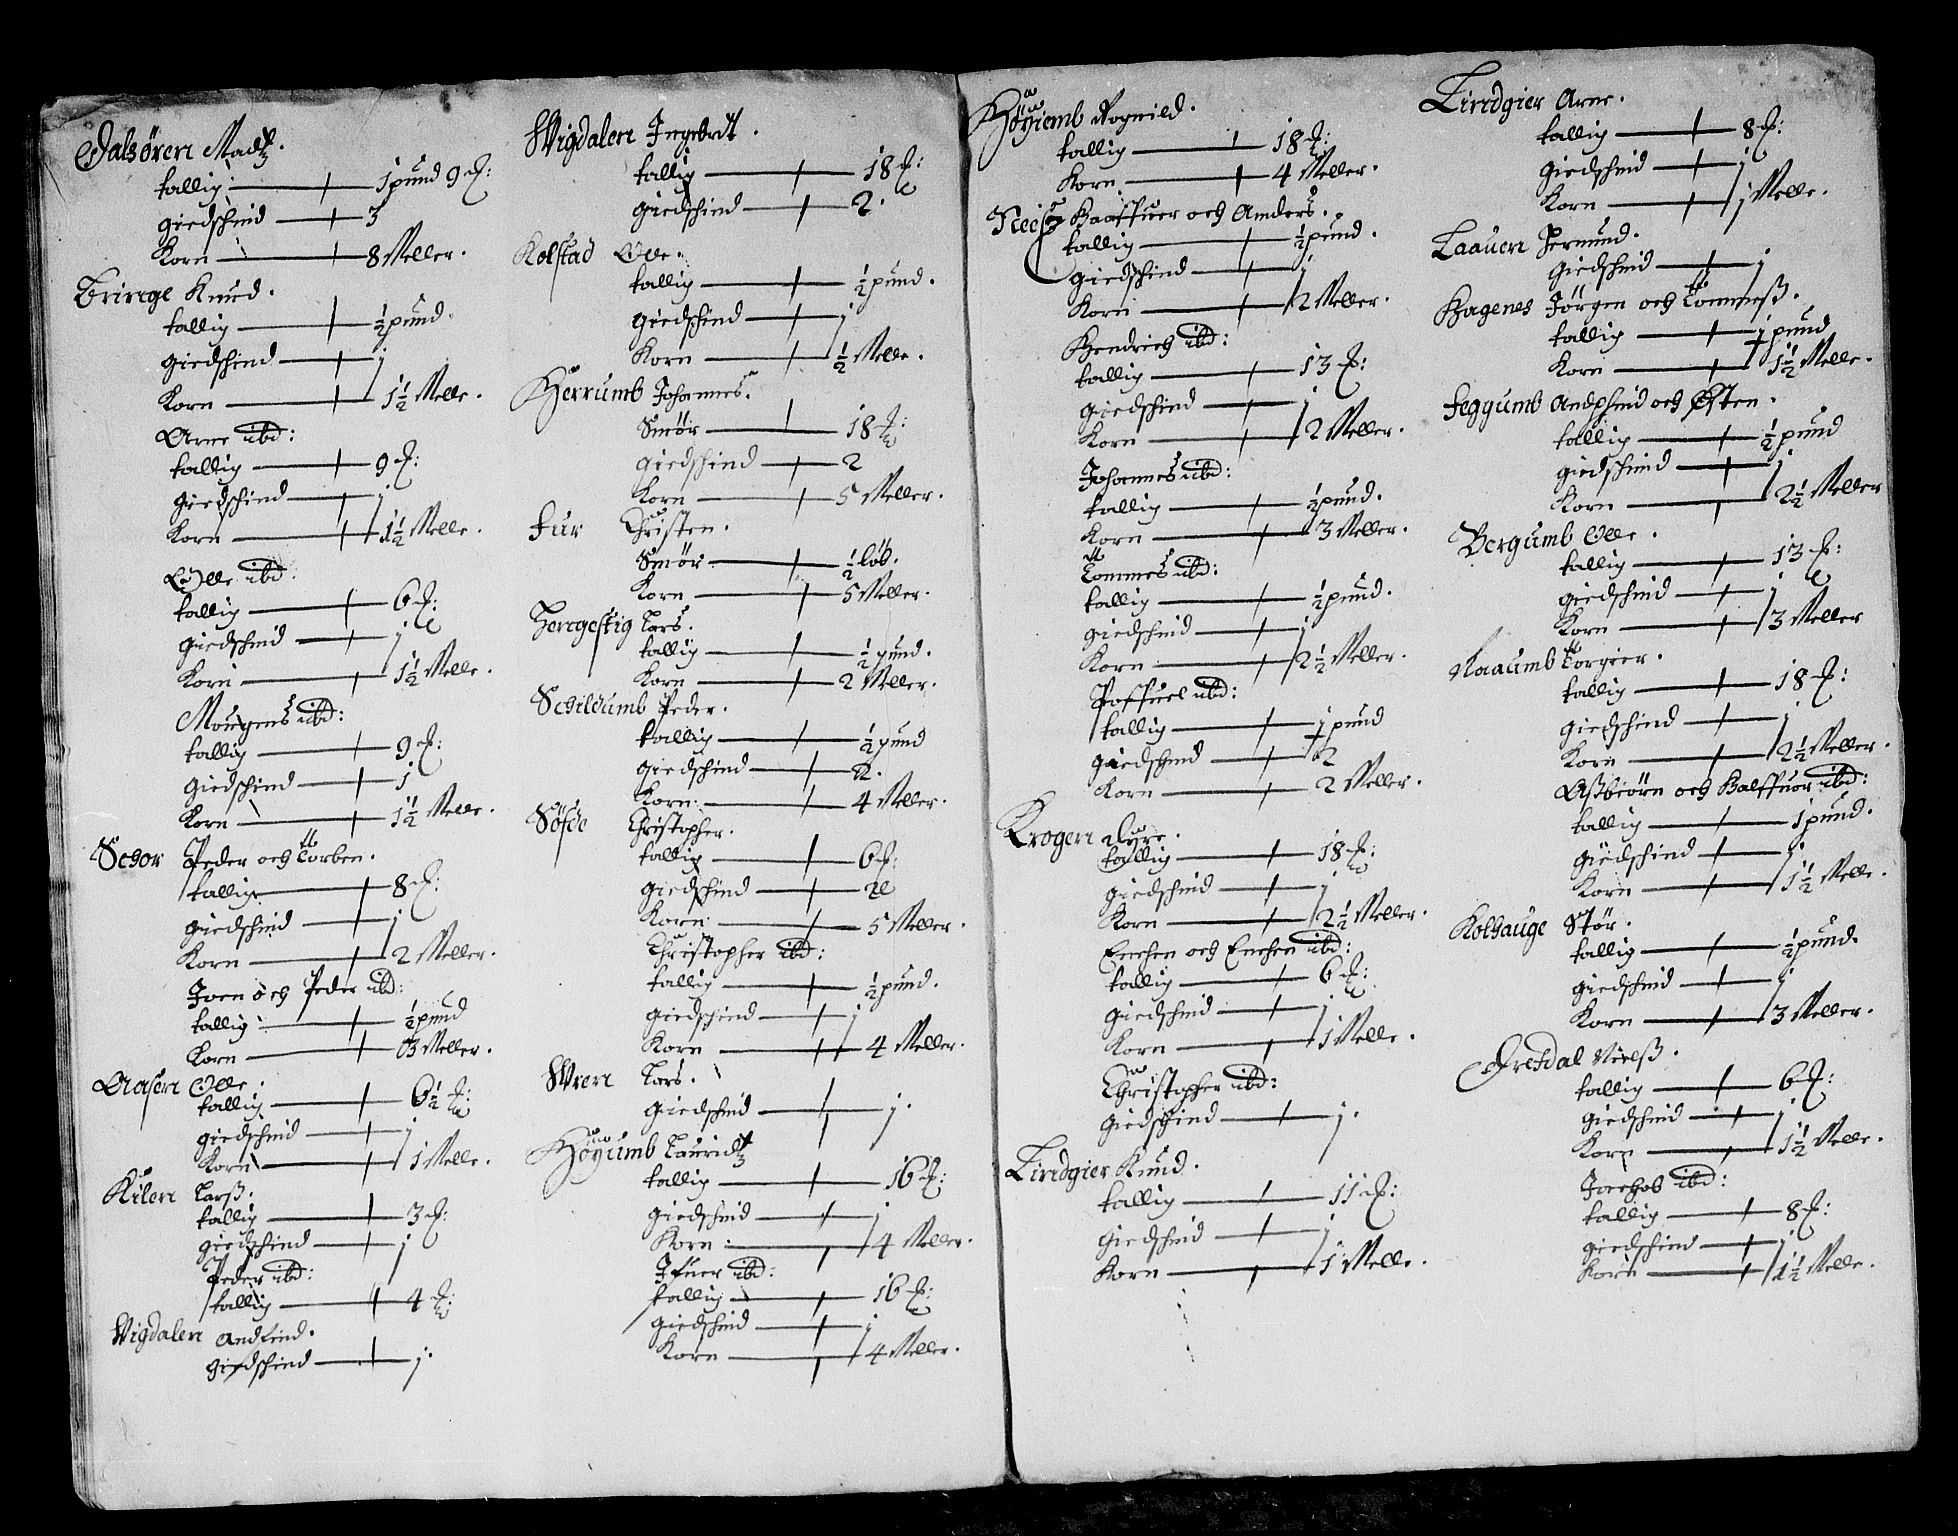 Dalsøren Madtz.
tallig — 1 pund 9 ℔:
giedschind — 3
Korn — 8 Meller.
Bringe Knud.
tallig — ½ pund.
giedschind — j
Korn — 1½ Melle.
Arne ibd:
tallig — 9 ℔:
giedschind — j
Korn — 1½ Melle.
Olle ibd:
tallig — 6 ℔:
giedschind — j
Korn — 1½ Melle.
Mougens ibd:
tallig — 9 ℔:
giedschind — j
Korn — 1½ Melle.
Schor Peder och Torben.
tallig — 8 ℔:
giedschind — j
Korn — 2 Meller.
Iven och Peder ibd:
tallig — ½ pund
Korn — 3 Meller.
Aasen Olle.
tallig — 6½ ℔:
giedschind — j
Korn — 1 Melle.
Kilen Larss.
tallig — 3 ℔:
giedschind — j
Peder ibd:
tallig — 4 ℔:
Wigdalen Andfind.
giedschind — j.
Wigdalen Ingebrdt.
tallig — 18 ℔:
giedschind — 2.
Kolstad Olle.
tallig — ½ pund.
giedschind — j
Korn — ½ Melle.
Herrumb Johannes.
Smør — 18 ℔:
giedschind — 2
Korn — 5 Meller.
Fur Christen.
Smør — ½ løb.
Korn — 5 Meller.
Hengestig Lars.
tallig — ½ pund.
Korn — 2 Meller.
Schildumb Peder.
tallig — ½ pund
giedschind — 2.
Korn — 4 Meller.
Søfde Christopher.
tallig — 6 ℔:
giedschind — 2
Korn — 5 Meller.
Christopher ibd:
tallig — ½ pund.
giedschind — j
Korn — 4 Meller.
Wren Lars.
giedschind — j.
Høyumb Lauridtz
tallig — 16 ℔:
giedschind — j
Korn — 4 Meller.
Ifuer ibd:
tallig — 16 ℔:
giedschind — j
Korn — 4 Meller.
Høyiemb Rognild.
tallig — 18 ℔:
Korn — 4 Meller.
Haaffuer och Anders.
tallig — ½ pund.
giedschind — j
Korn — 2 Meller.
Hendrich ibd:
tallig — 13 ℔:
giedschind — j
Korn — 2 Meller.
Johannes ibd:
tallig — ½ pund.
Korn — 3 Meller.
Tommes ibd:
tallig — ½ pund.
giedschind — j
Korn — 2½ Meller.
Poffuel ibd:
tallig — j pund
giedschind — 2
Korn — 2 Meller.
Krogen Dyre.
tallig — 18 ℔:
giedschind — j
Korn — 2½ Meller.
Enchen och Enchen ibd:
tallig — 6 ℔:
giedschind — j
Korn — 1 Melle.
Christopher ibd:
giedschind — j.
Lindgier Knud.
tallig — 11 ℔:
giedschind — j
Korn — 1 Melle.
Lindgier Arne.
tallig — 8 ℔:
giedschind — j
Korn — j Melle.
Laauen Jermund.
giedschind — j
Hagenes Jørgen och Tommess.
tallig — j pund
Korn — 1½ Melle.
Feggumb Andphind och Østen.
tallig — ½ pund
giedschind — j
Korn — 2½ Meller
Bergumb Olle.
tallig — 13 ℔:
giedschind — j
Korn — 3 Meller
Naaumb Torgier.
tallig — 18 ℔:
giedschind — j
Korn — 2½ Meller.
Assbiørn och Halffuor ibd:
tallig — 1 pund.
giedschind — j
Korn — 1½ Melle.
Kolhauge Stør.
tallig — ½ pund.
giedschind — j
Korn — 3 Meller.
Dresdal Nielss.
tallig — 6 ℔:
giedschind — j
Korn — 1½ Melle.
Jachob ibd:
tallig — 8 ℔:
giedschind — j
Korn — 1½ Melle.